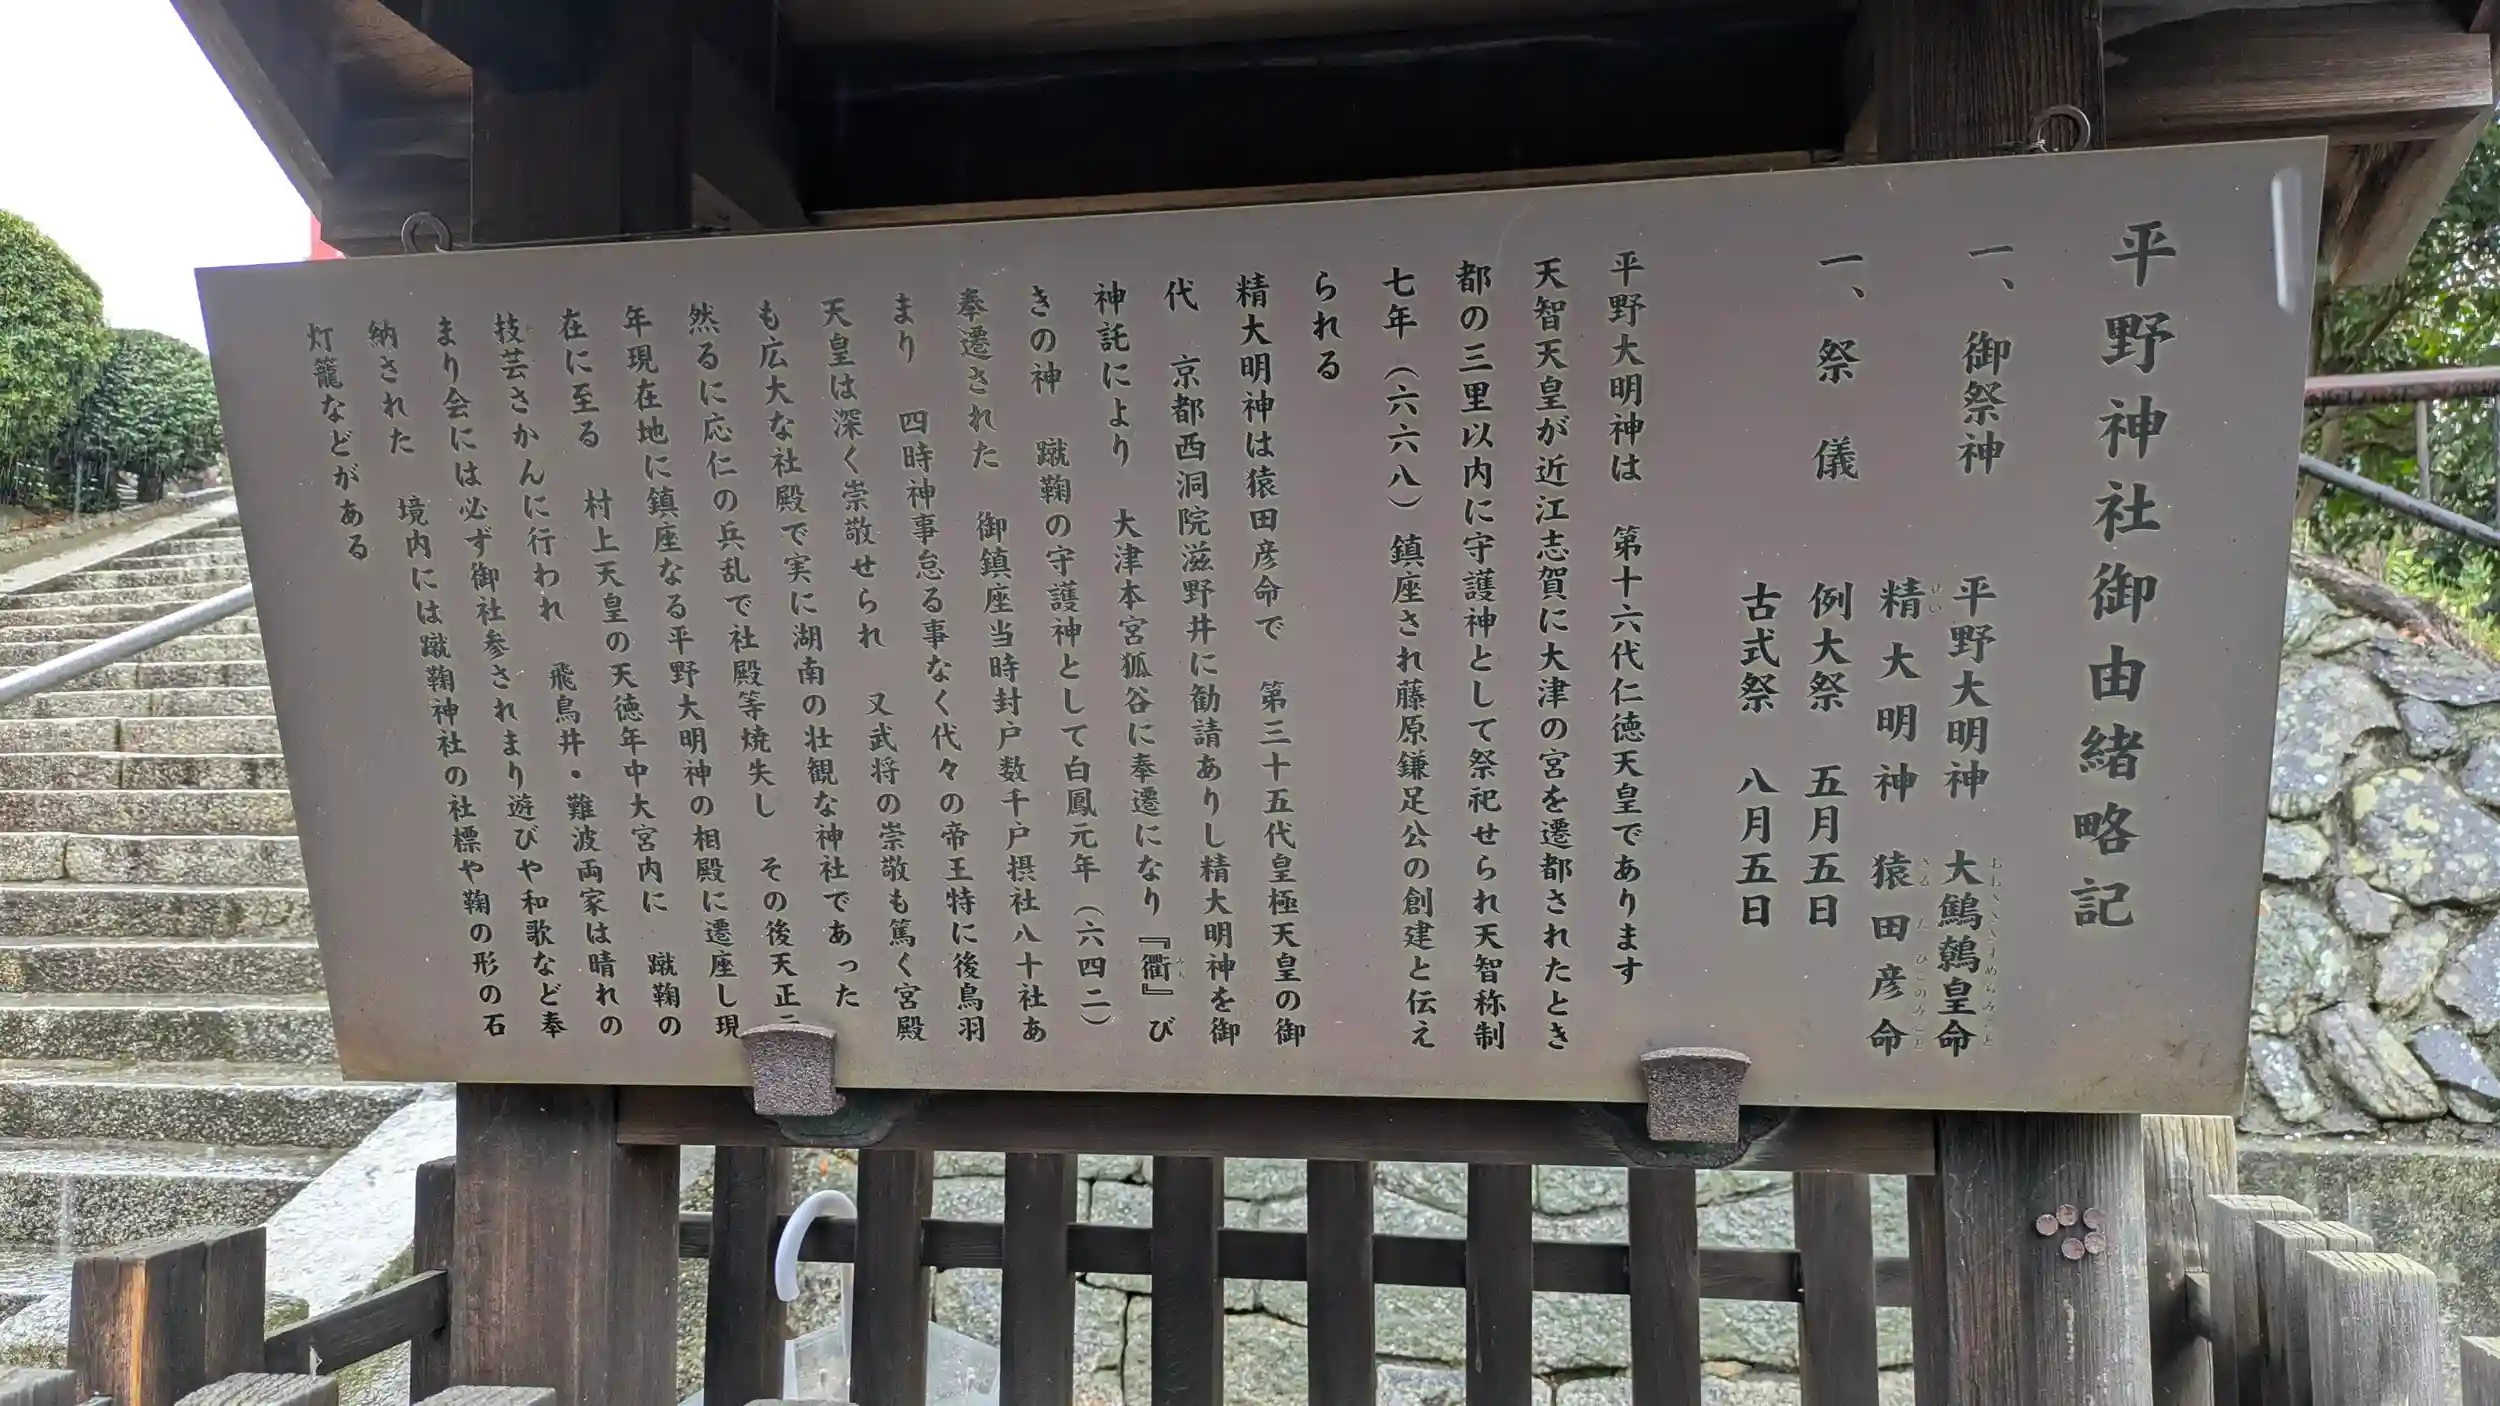 平野神社御由緒略記
一、御祭神　平野大明神　大鷦鷯皇命
精大明神　猿田彦命
一、祭　儀　例大祭　五月五日
古式祭　八月五日
平野大明神は　第十六代仁徳天皇であります
天智天皇が近江志賀に大津の宮を遷都されたとき
都の三里以内に守護神として祭祀せられ天智称制
七年（六六八）鎮座され藤原鎌足公の創建と伝え
られる
精大明神は猿田彦命で　第三十五代皇極天皇の御
代　京都西洞院滋野井に勧請ありし精大明神を御
神託により　大津本宮狐谷に奉遷になり『衢』び
きの神　蹴鞠の守護神として白鳳元年（六四二）
奉遷された　御鎮座当時封戸数千戸摂社八十社あ
まり　四時神事怠る事なく代々の帝王特に後鳥羽
天皇は深く崇敬せられ　又武将の崇敬も篤く宮殿
も広大な社殿で実に湖南の壮観な神社であった
然るに応仁の兵乱で社殿等焼失し　その後天正二
年現在地に鎮座なる平野大明神の相殿に遷座し現
在に至る　村上天皇の天徳年中大宮内に　蹴鞠の
技芸さかんに行われ　飛鳥井・難波両家は晴れの
まり会には必ず御社参されまり遊びや和歌など奉
納された　境内には蹴鞠神社の社標や鞠の形の石
灯籠などがある